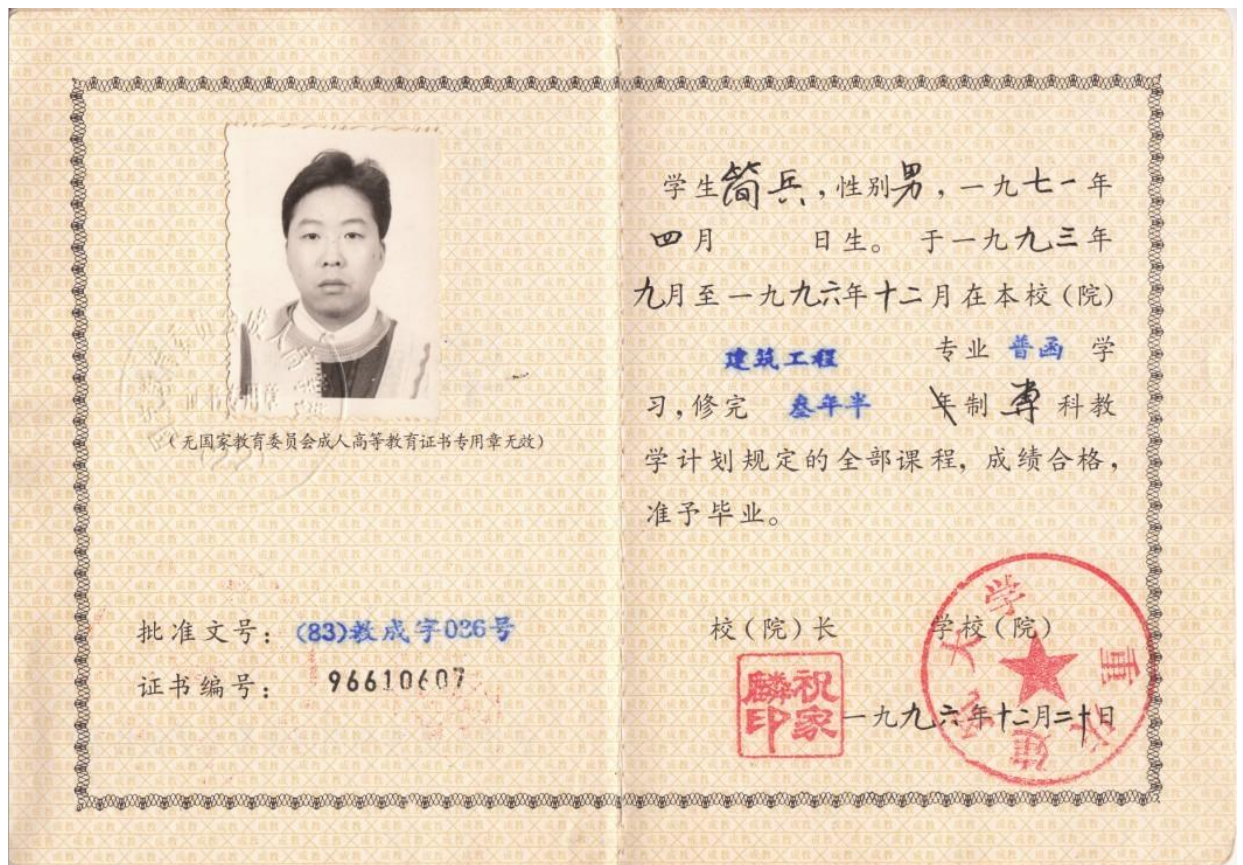 (无国家教育委员会成人高等教育证书专用章无效)
批准文号: (83)教成字036号
证书编号: 96610607
学生简兵,性别男,一九七一年
四月 日生。于一九九三年
九月至一九九六年十二月在本校(院)
建筑工程 专业 普函 学
习,修完 叁年半 年制 专 科教
学计划规定的全部课程,成绩合格,
准予毕业。
校(院)长 学校(院)
祝家麟印
一九九六年十二月二十日
重庆建筑大学